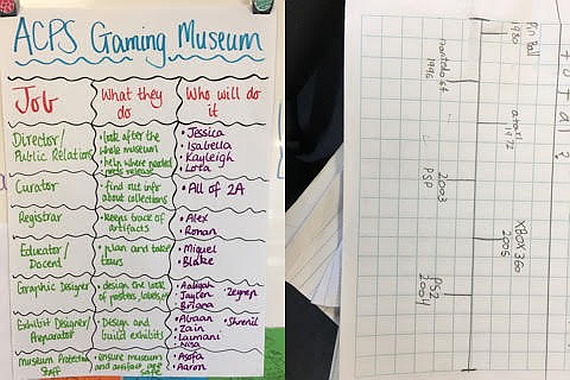 ACPS Gaming Museum
Job
What they
do
Who will do
it
Director/
Public Relations
• look after the
whole museum
• help where needed
press release
• Jessica
• Isabella
• Kayleigh
• Lota
Curator
• find out info
about collections
• All of 2A
Registrar
• keeps track of
artifacts
• Alex
• Ronan
Educator/
Docent
• plan and take
tours
• Miquel
• Blake
Graphic Designer
• design the look
of posters, labels
• Aaliyah
• Zeynep
Jaylen
Briana
Exhibit Designer/
Preparator
• Design and
build exhibits
• Shrenil
• Zain
• Laimani
• Nisa
Museum Protection
Staff
• ensure museum
and artifact are
safe
• Asofa
• Aaron
Pin Ball
1980
nintendo 64
1996
atari
1972
2003
PSP
XBOX 360
2005
PS2
2004